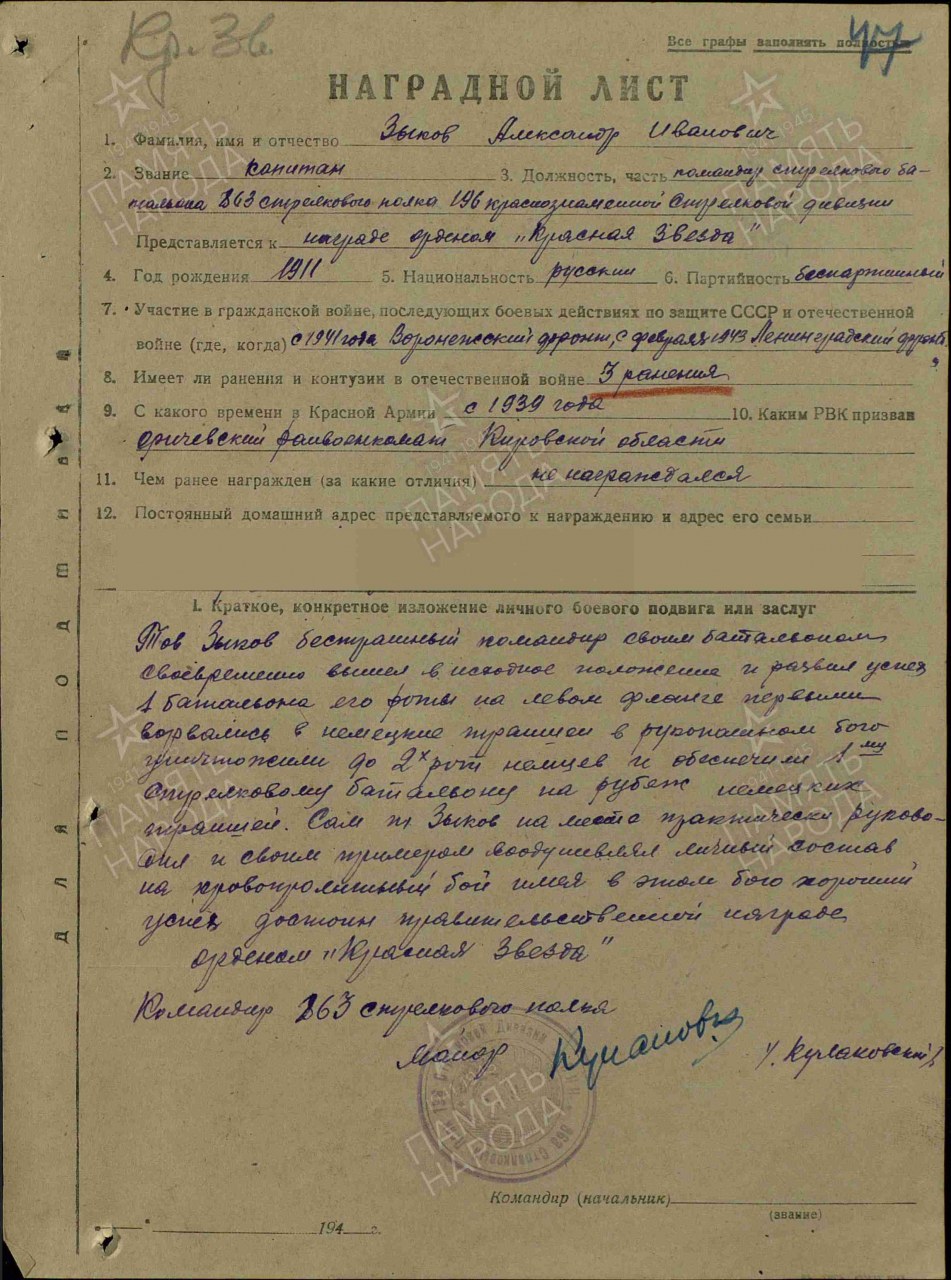 Кр. Зв.
Все графы заполнять полностью
47
НАГРАДНОЙ ЛИСТ
1. Фамилия, имя и отчество Зыков Александр Иванович
2. Звание капитан 3. Должность, часть командир стрелкового ба-
тальона 863 стрелкового полка 196 краснознаменной стрелковой дивизии
Представляется к награде орденом „Красная Звезда"
4. Год рождения 1911 5. Национальность русский 6. Партийность беспартийный
7. Участие в гражданской войне, последующих боевых действиях по защите СССР и отечественной
войне (где, когда) с 1941 года Воронежский фронт, с февраля 1943 Ленинградский фронт
8. Имеет ли ранения и контузии в отечественной войне 3 ранения
9. С какого времени в Красной Армии с 1939 года 10. Каким РВК призван
райвоенкомат Кировской области
11. Чем ранее награжден (за какие отличия) не награждался
12. Постоянный домашний адрес представляемого к награждению и адрес его семьи
I. Краткое, конкретное изложение личного боевого подвига или заслуг
Тов Зыков бесстрашный командир своим батальоном
своевременно вышел в исходное положение и развил успех
1 батальона его роты на левом фланге первыми
ворвались в немецкие траншеи в рукопашном бою
уничтожили до 2х рот немцев и обеспечили 1му
стрелковому батальону на рубеж немецких
траншей. Сам т. Зыков на месте практически руково-
дил и своим примером воодушевлял личный состав
на кровопролитный бой имея в этом бою хороший
успех достоин правительственной награде
орденом „Красная Звезда"
Командир 863 стрелкового полка
Майор
Командир (начальник)
(звание)
194 г.
Для подшивки
ПАМЯТЬ НАРОДА
1941-1945